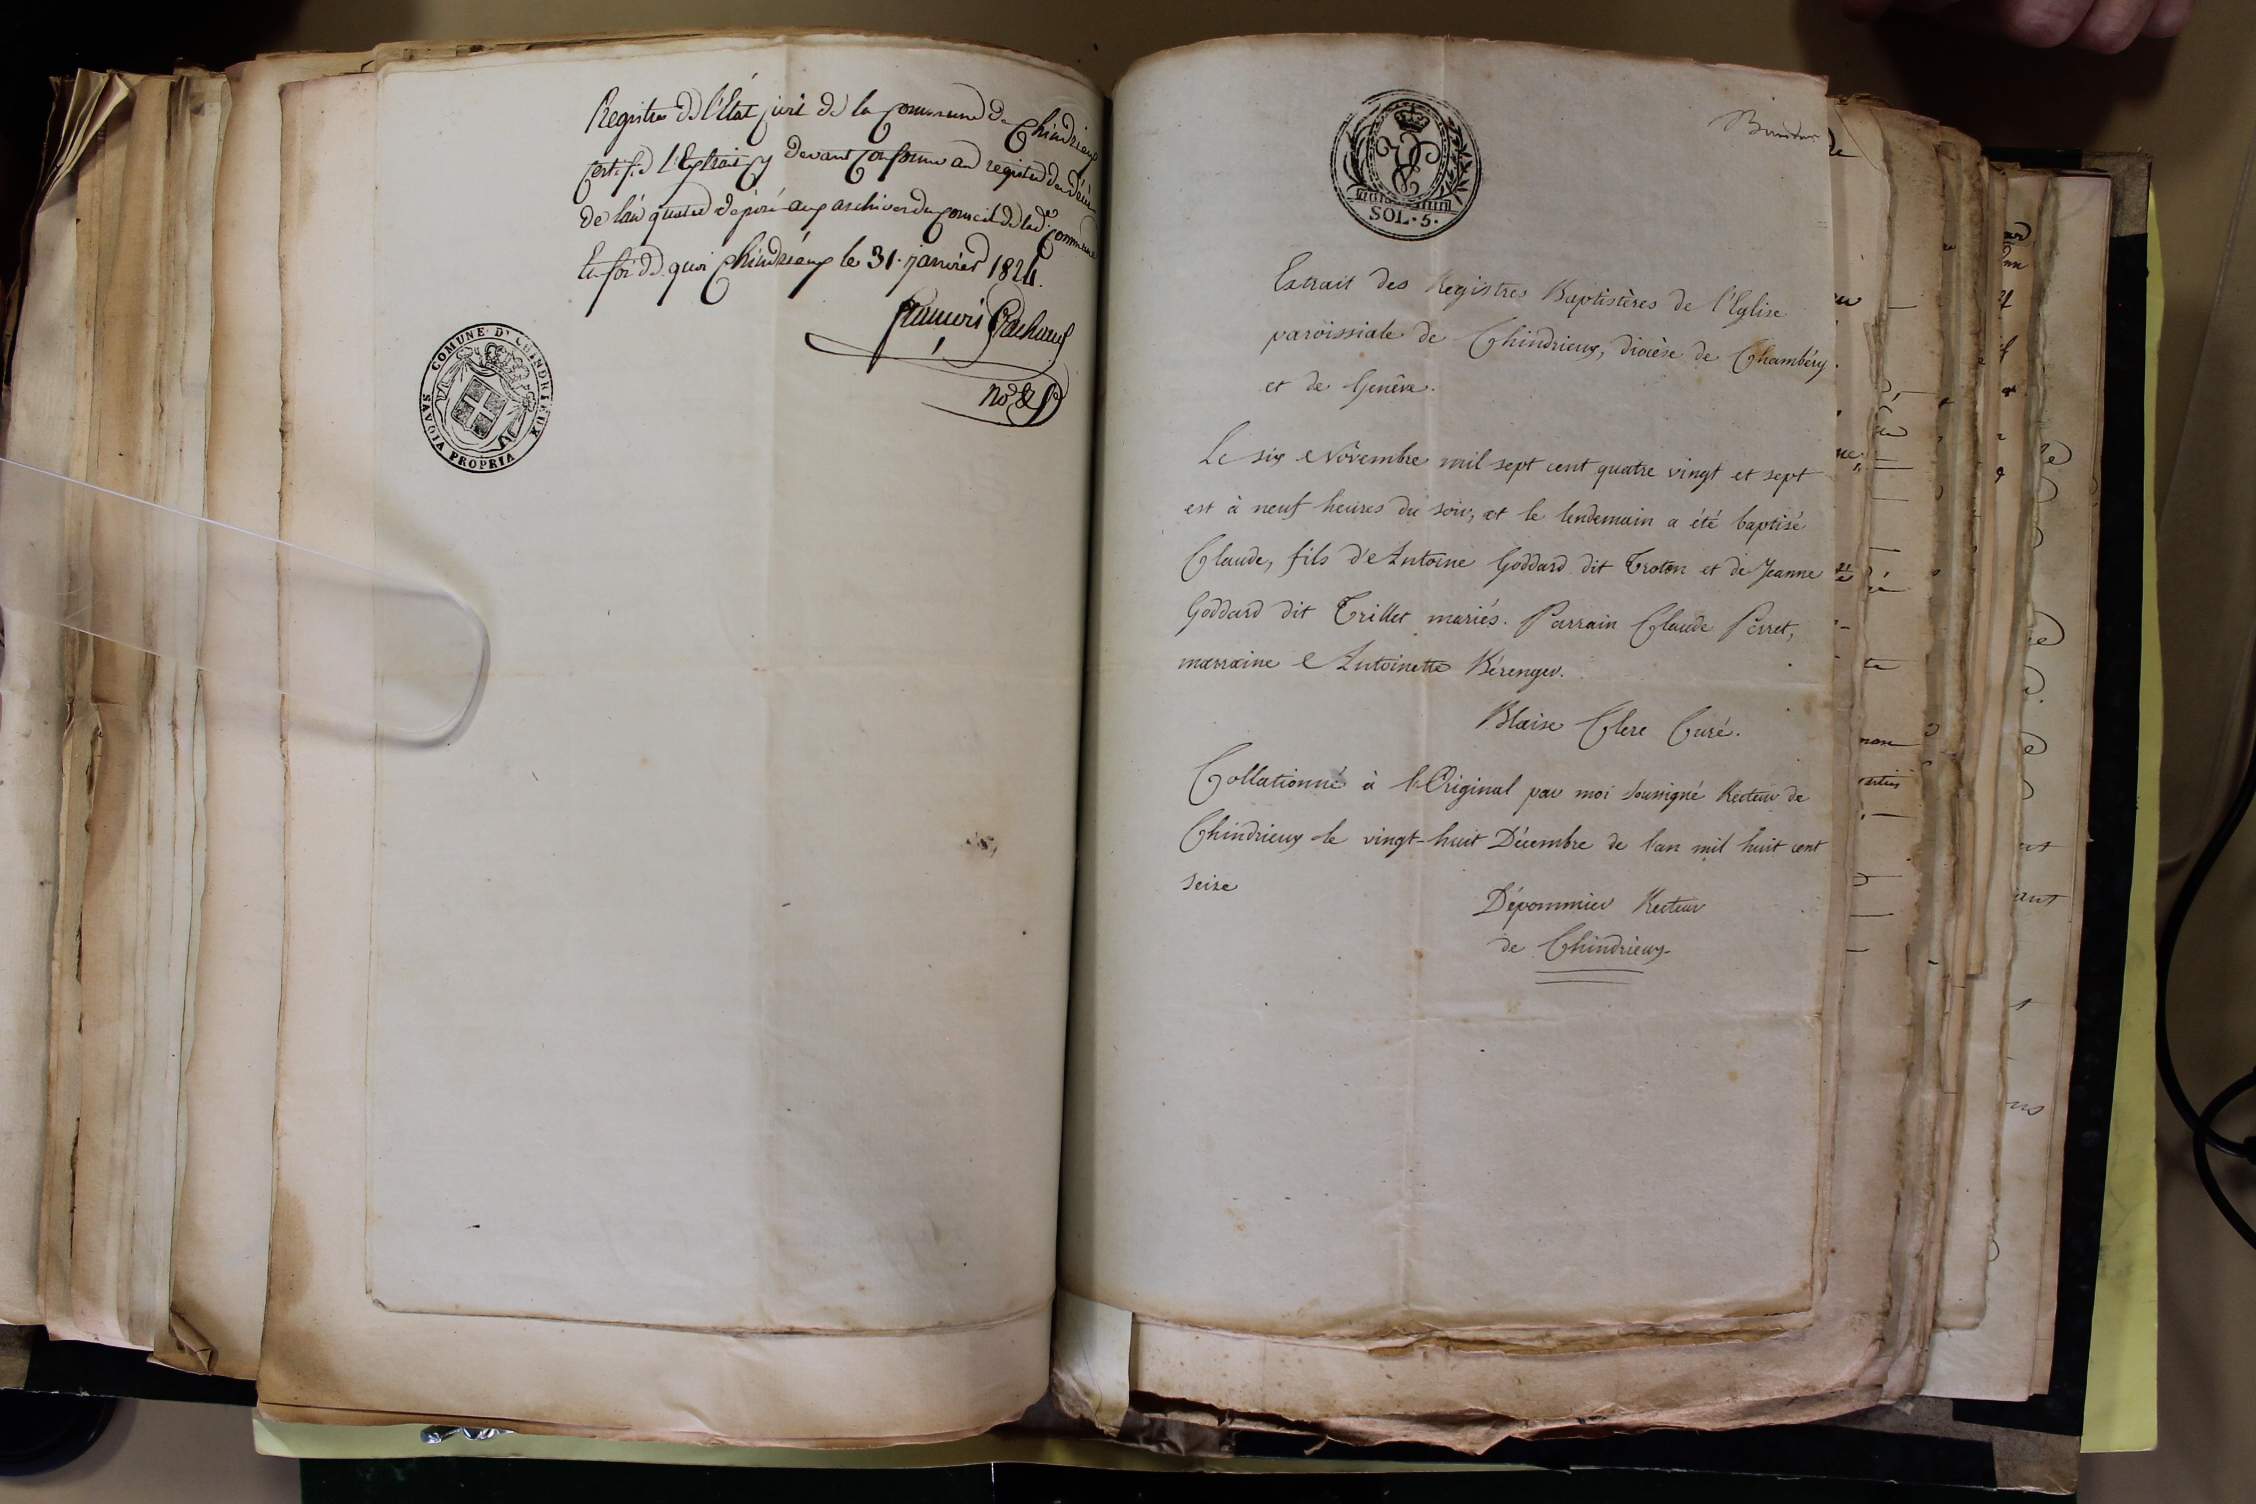 Registres de l'Etat civil de la Commune de Chindrieux
Certifie l'Extrait cy devant Conforme au registre des décès
de l'an quatre déposé aux archives du Conseil de lad.e Commune
En foi de quoi Chindrieux le 31. janvier 1824.
François
COMUNE DI CHINDRIEUX
SAVOIA PROPRIA
SOL. 5.
Extrait des Registres Baptistères de l'Eglise
paroissiale de Chindrieux, diocèse de Chambéry
et de Genève.
Le six Novembre mil sept cent quatre vingt et sept
est à neuf heures du soir, et le lendemain a été baptisé
Claude, fils d'Antoine Goddard dit Troton et de Jeanne
Goddard dit Trillet mariés. Parrain Claude Perret,
marraine Antoinette Bérenger.
Blaise Clerc Curé.
Collationné à l'Original par moi soussigné Recteur de
Chindrieux le vingt-huit Décembre de l'an mil huit cent
seize
Dépommier Recteur
de Chindrieux